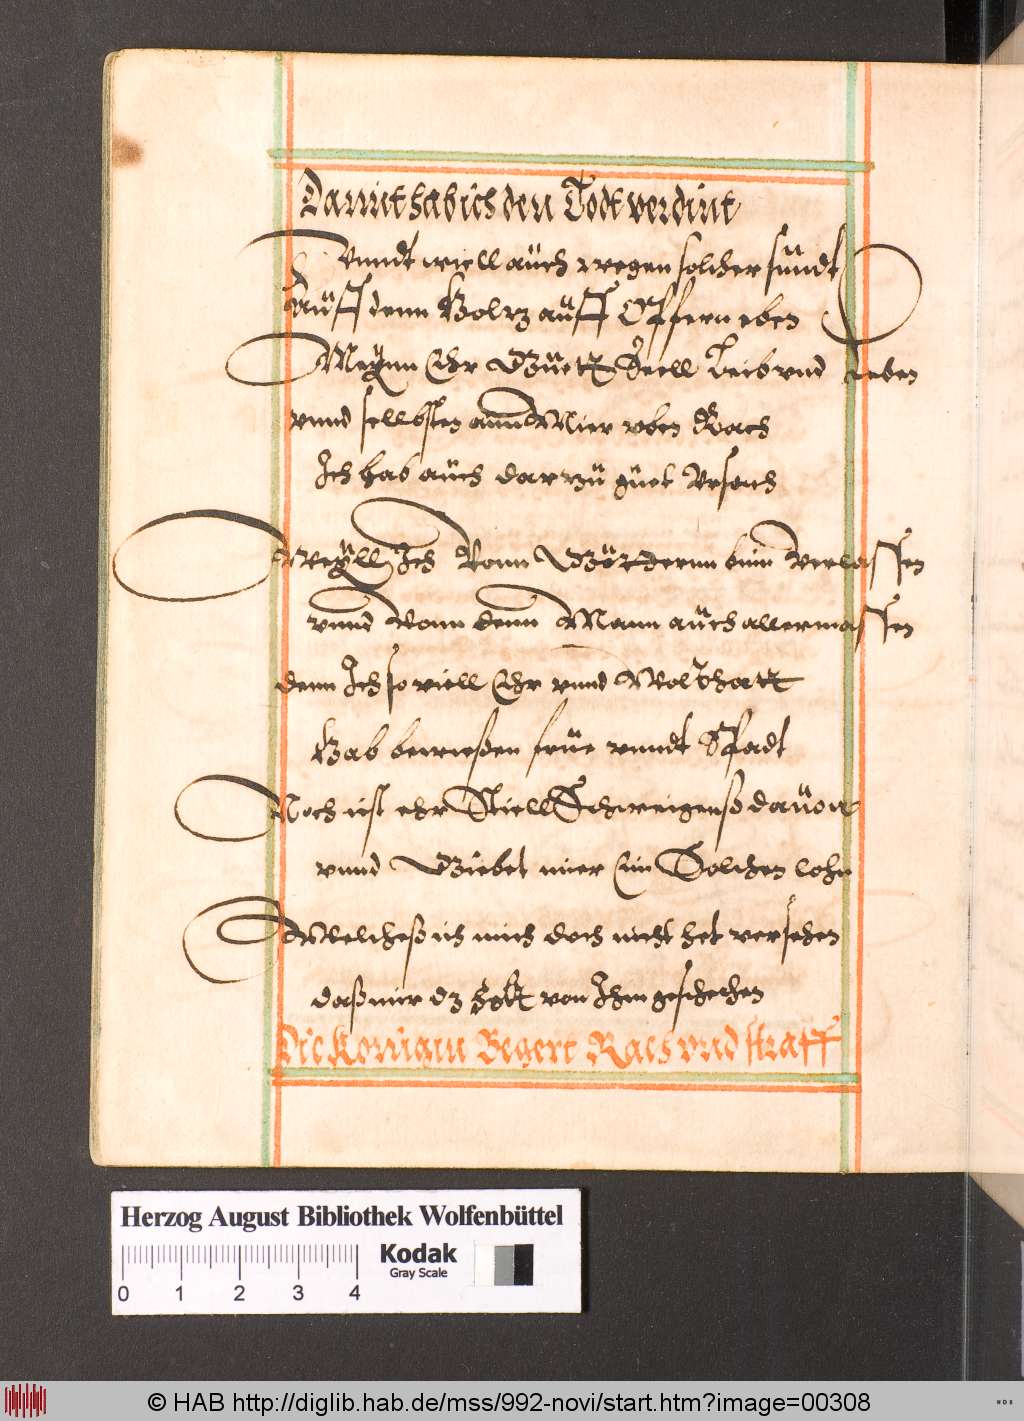 Damit hab ich den Todt verdint
Vnndt wiell aüch wegen solcher sündt
Aüff denn Holtz aüff Opffern eben
Meÿnn Ehr Güett Seell Leib vnd Leben
vnnd sellbsten ann Mier vben Rach
Ich hab aüch darzü güet Vrsach
Weÿll Ich Vonn Götdernn binn Verlassen
vnnd Vonn denn Mann aüch allermassen
denn Ich so viell Ehr vnnd Wolthatt
Hab bewießen früe vnndt Spadt
Noch ist ehr Stiell Schweigenß dauon
vnnd Giebet mier Ein Solchen lohn
Welcheß ich mich doch nicht het versehen
daß mir dz solt von Ihm geschehen
Die Konigin Begert Rach vnd straff
Herzog August Bibliothek Wolfenbüttel
0 1 2 3 4
Kodak
Gray Scale
© HAB http://diglib.hab.de/mss/992-novi/start.htm?image=00308